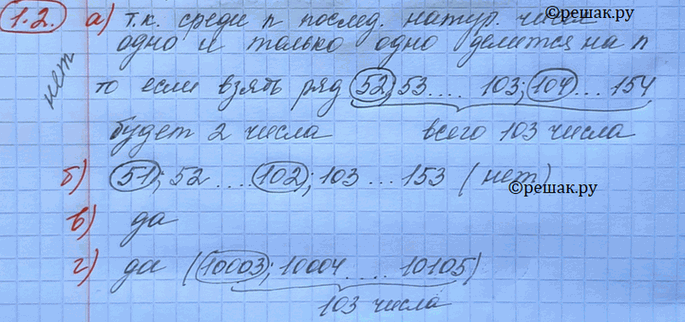 ©решак.ру
1.2. а) т.к. среди n послед. натур. чисел
одно и только одно делится на n
нет
то если взять ряд 52, 53 .... 103; 104 ... 154
будет 2 числа всего 103 числа
б) 51; 52 .... 102; 103 ... 153 (нет)
©решак.ру
в) да
г) да (10003; 10004 .... 10105)
103 числа